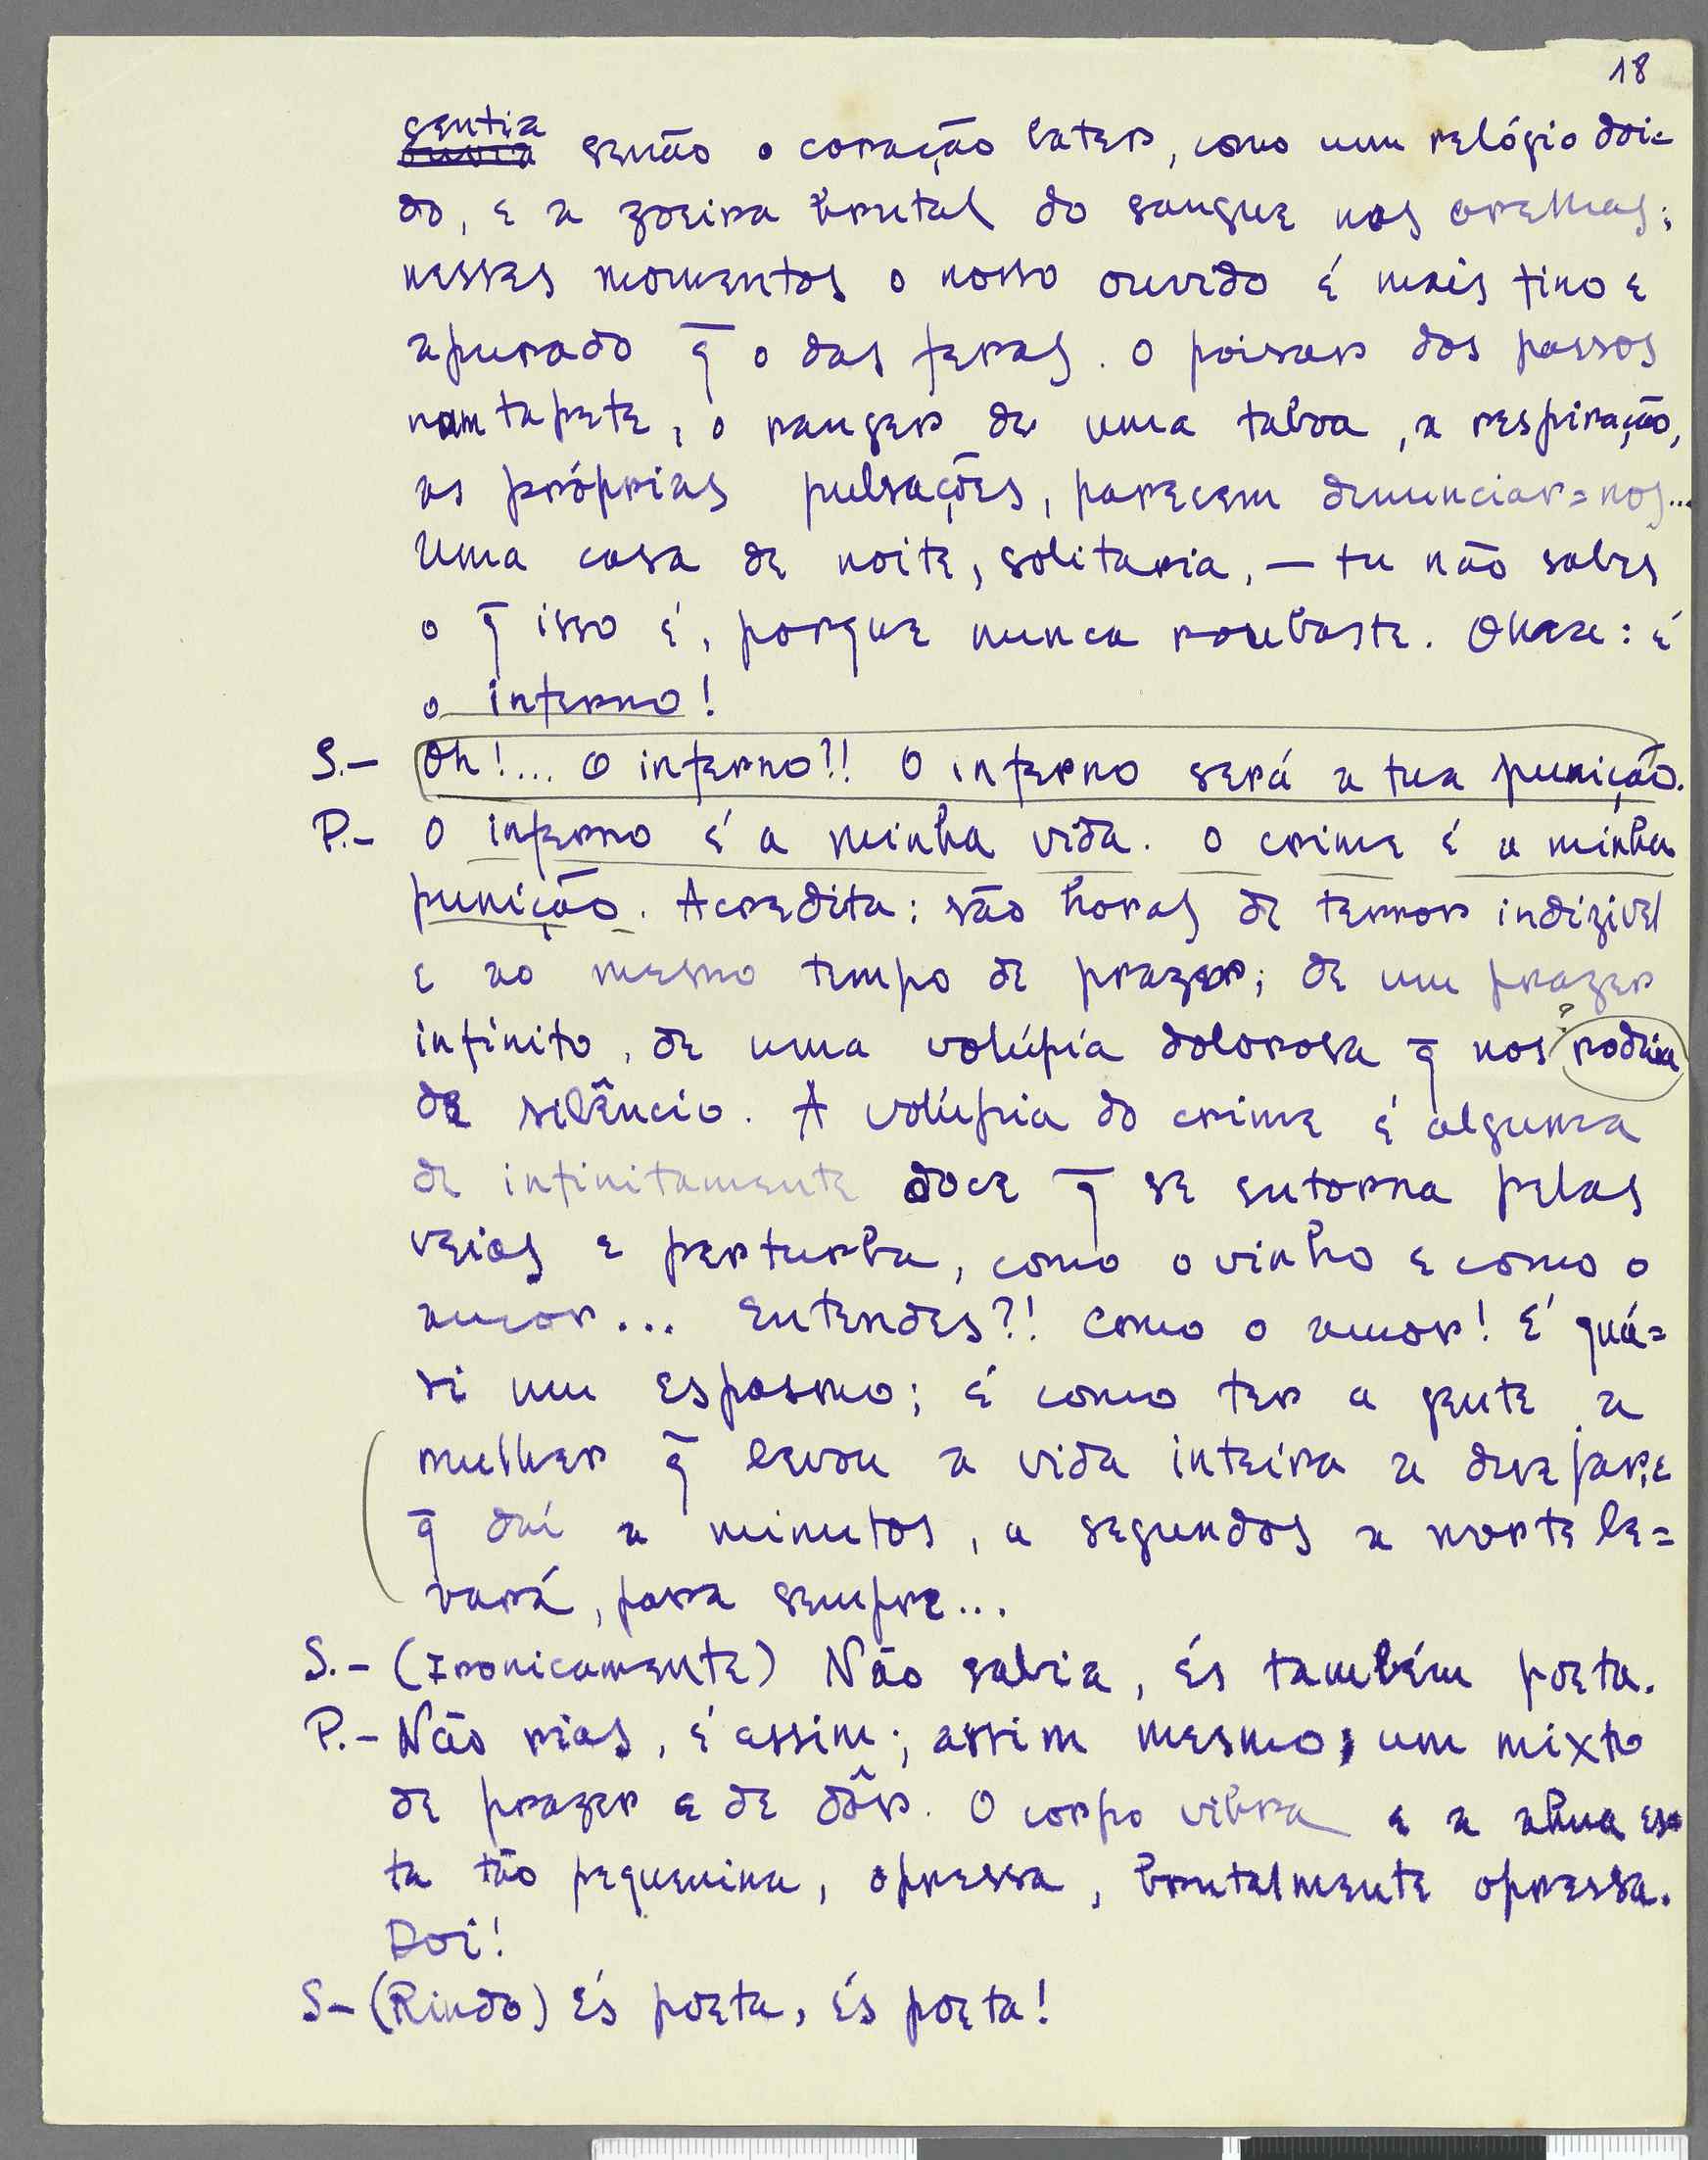 18
sentia
ouvia senão o coração bater, como um relógio doi=
do, e a zoeira brutal do sangue nas orelhas;
nesses momentos o nosso ouvido é mais fino e
apurado q̄ o das feras. O poisar dos passos
num tapete, o ranger de uma taboa, a respiração,
as próprias pulsações, parecem denunciar=nos...
Uma casa de noite, solitaria, — tu não sabes
o q̄ isso é, porque nunca roubaste. : é
o inferno!
S.— Oh!... O inferno?!! O inferno será a tua punição.
P.— O inferno é a minha vida. O crime é a minha
punição. Acredita: são horas de terror indizivel
e ao mesmo tempo de prazer; de um prazer
infinito, de uma volúpia dolorosa q̄ nos ? rodeia
de silêncio. A volúpia do crime é alguma
de infinitamente doce q̄ se entorna pelas
veias e perturba, como o vinho e como o
amor... Entendes?! Como o amor! É quá=
si um espasmo; é como ter a gente a
mulher q̄ levou a vida inteira a desejar; e
q̄ daí a minutos, a segundos a morte le=
vará, para sempre...
S.— (Ironicamente) Não sabia, és também poeta.
P.— Não rias, é assim; assim mesmo, um mixto
de prazer e de dôr. O corpo vibra e a alma es=
ta tão pequenina, opressa, brutalmente opressa.
Doi!
S— (Rindo) És poeta, és poeta!